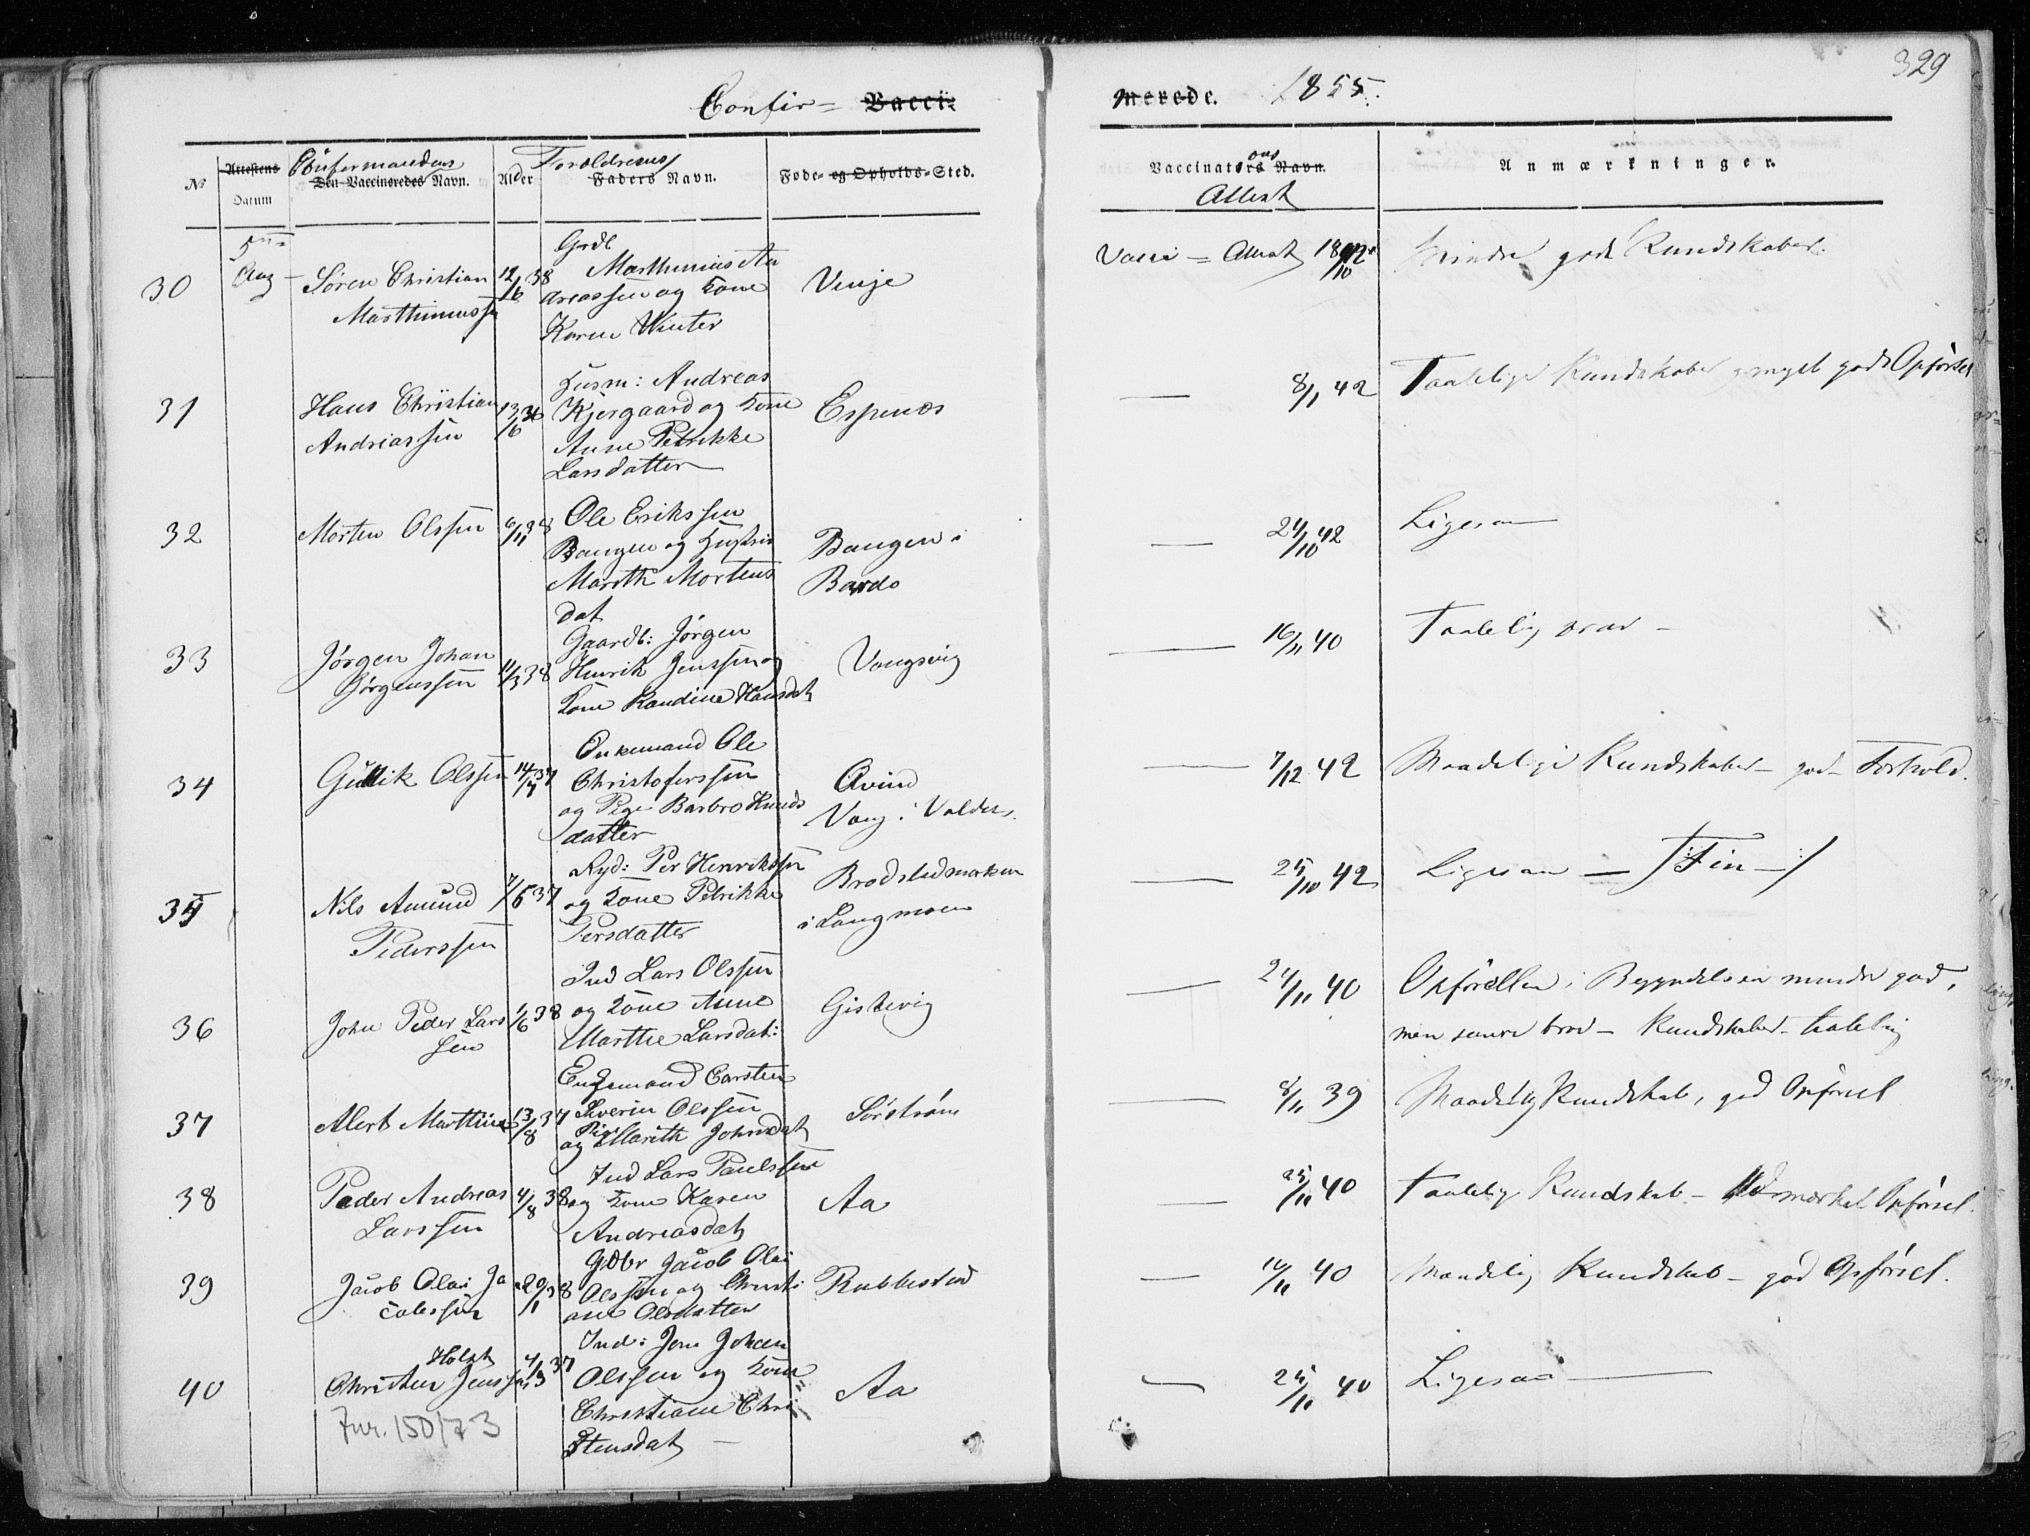 329
Confir = Vacci=
merede. 1855.
№
Attestens Datum
Confirmandens
Den Vaccineredes Navn.
Alder
Forældrenes
Faders Navn.
Føde- og Opholds-Sted.
Vaccinations
Vaccinators Navn.
Attest
Anmærkninger.
30
Aug
Søren Christian
Marthinussen
12/6 38
Grdb
Marthinus An
dreassen og Kone
Karen Winter
Vinje
Vacci = Attest
Mindre gode Kundskaber.
31
Hans Christian
Andreassen
Husm: Andreas
Kjergaard og Kone
Anne Petrikke
Larsdatter
Espenes
8/1 42
Taalelige Kundskaber, meget gods Opførsel
32
Morten Olssen
6/11 38
Ole Erikssen
Bangen og Hustru
Marith Mortens
dat
Bangen i
Bardo
24/10 42
Ligesaa
33
Jørgen Johan
Jørgenssen
11/3 38
Gaardb: Jørgen
Henrik Jenssen og
Kone Randine Hansdat
Vangsvig
16/11 40
Taalelig brav
34
Gullik Olssen
14/7 37
Enkemand Ole
Christoferssen
og Pige Barbro Knuds
datter
Øvind
Vang i Valders.
7/12 42
Maadelige Kundskaber - god Forhold.
35
Nils Amund
Pederssen
7/5 37
Ryd: Per Henrikssen
og Kone Petrikke
Persdatter
Brodstadmarken
i Langmoen
25/10 42
Ligesaa - /: Fin :/
36
John Peder Lars
sen
1/6 38
Ind Lars Olssen
og Kone Anne
Marthe Larsdat:
Giskevig
24/11 40
Opførsllen i Begyndelsen mindre god,
men senere brav - Kundskaber taalelig
37
Alert Marthin
13/8 37
Ungemand Carsten
Severin Olssen
og Pige Marith Johnsdat
Sørstrøm
8/11 39
Maadelig Kundskab, god Opførsel
38
Peder Andreas
Larssen
4/8 38
Ind Lars Paulssen
og Kone Karen
Andreasdat
Aa
25/11 40
Taalelig Kundskab - Udmærket Opførsel.
39
Jacob Olai Ja
cobssen
29/1 38
Gdbr Jacob Olai
Olssen og Christi
ane Olsdatter
Rubbestad
16/11 40
Maadelig Kundskab - god Opførsel.
40
Holst
Christen Jenssen
4/3 37
Ind: Jens Johan
Olssen og Kone
Christiane Chri
stensdat
Aa
25/10 40
Ligesaa
Fnr. 150/73